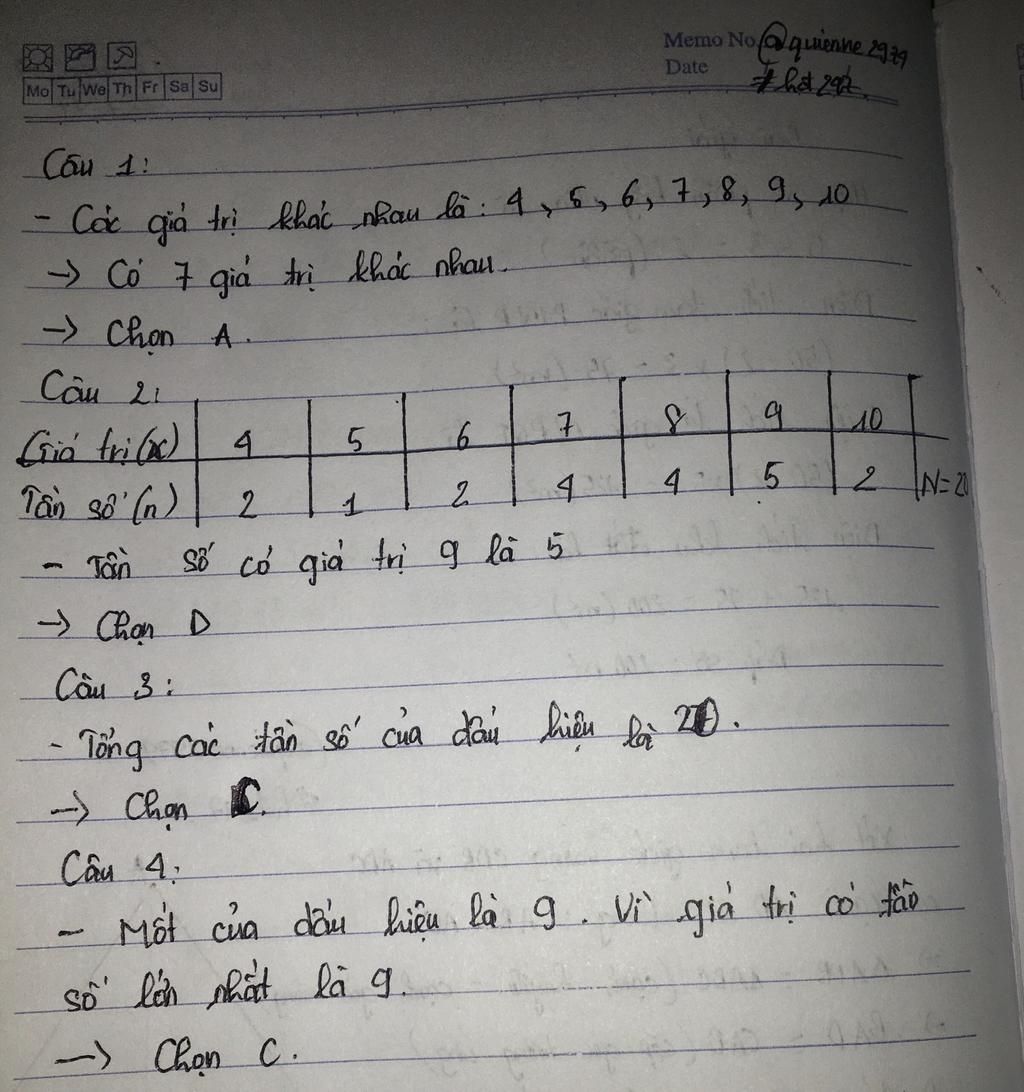 Memo No. @quienne2979
Date #hst292
Mo Tu We Th Fr Sa Su
Câu 1:
- Các giá trị khác nhau là: 4, 5, 6, 7, 8, 9, 10
-> Có 7 giá trị khác nhau.
-> Chọn A.
Câu 2:
Giá trị (x) 4 5 6 7 8 9 10
Tần số (n) 2 1 2 4 4 5 2 N=20
- Tần số có giá trị 9 là 5
-> Chọn D
Câu 3:
- Tổng các tần số của dấu hiệu là 20.
-> Chọn C.
Câu 4:
- Mốt của dấu hiệu là 9. Vì giá trị có tần
số lớn nhất là 9.
-> Chọn C.